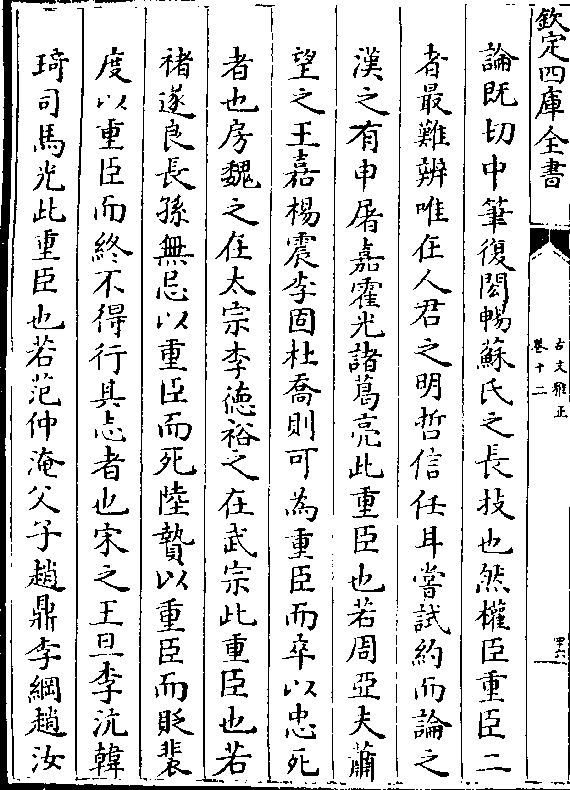 欽定四庫全書
古文雅正
卷十二
四六
論既切中筆復閎暢蘇氏之長技也然權臣重臣二
者最難辨唯在人君之明哲信任耳嘗試約而論之
漢之有申屠嘉霍光諸葛亮此重臣也若周亞夫蕭
望之王嘉楊震李固杜喬則可為重臣而卒以忠死
者也房魏之在太宗李德裕之在武宗此重臣也若
禇遂良長孫無忌以重臣而死陸贄以重臣而貶裴
度以重臣而終不得行其志者也宋之王旦李沆韓
琦司馬光此重臣也若范仲淹父子趙鼎李綱趙汝